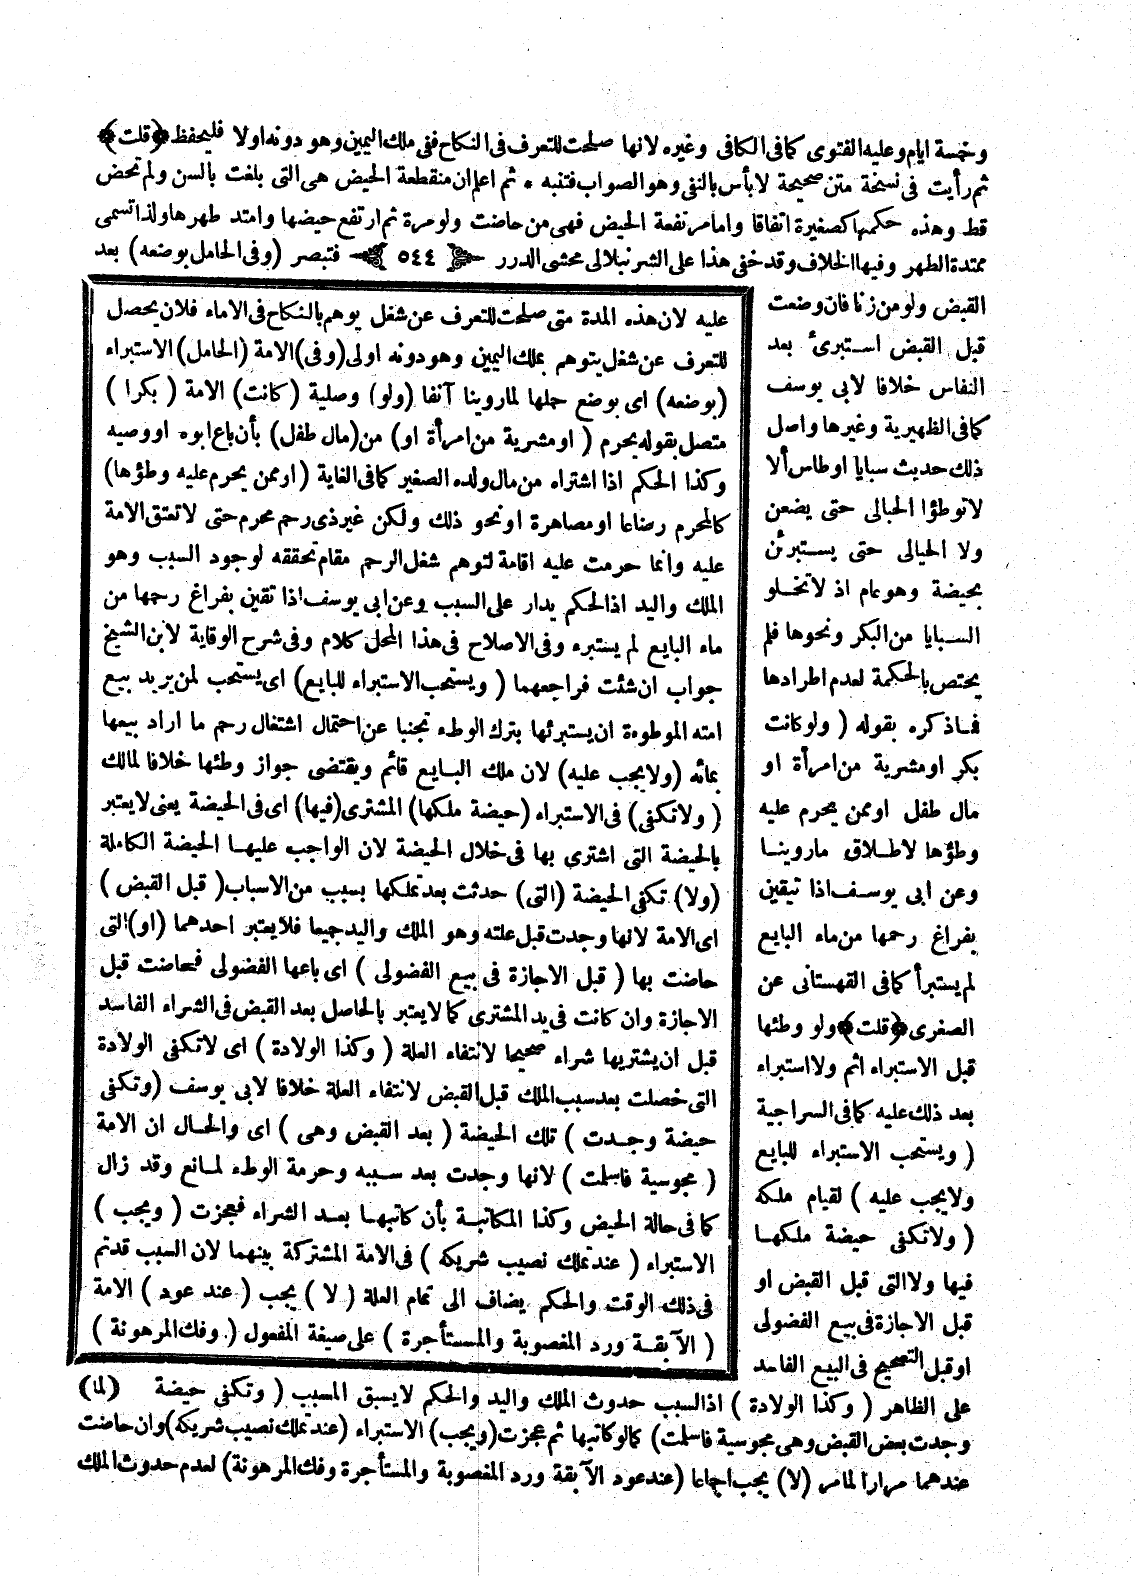 وخمسة ايام وعليه الفتوى كما فى الكافى وغيره لانها صلحت للتعرف فى النكاح ففى ملك اليمين وهو دونه اولا فليحفظ ﴿قلت﴾
ثم رأيت فى نسخة متن صحيحة لا بأس بالنفى وهو الصواب فتنبه * ثم اعلم ان منقطعة الحيض هى التى بلغت بالسن ولم تحض
قط وهذه حكمها كصغيرة اتفاقا واما مرتفعة الحيض فهى من حاضت ولو مرة ثم ارتفع حيضها وامتد طهرها ولذا تسمى
ممتدة الطهر وفيها الخلاف وقد خفى هذا على الشرنبلالى محشى الدرر ٥٤٤ فتبصر (وفى الحامل بوضعه) بعد
القبض ولو من زنا فان وضعت
قبل القبض استبرئ بعد
النفاس خلافا لابى يوسف
كما فى الظهيرية وغيرها واصل
ذلك حديث سبايا اوطاس ألا
لا توطؤا الحبالى حتى يضعن
ولا الحيالى حتى يستبرئن
بحيضة وهو عام اذ لا تخلو
السبايا من البكر ونحوها فلم
يختص بالحكمة لعدم اطرادها
فاذكره بقوله ( ولو كانت
بكر او مشرية من امرأة او
مال طفل او ممن يحرم عليه
وطؤها لاطلاق ما روينا
وعن ابى يوسف اذا تيقين
بفراغ رحمها من ماء البايع
لم يستبرأ كما فى القهستانى عن
الصغرى ﴿قلت﴾ ولو وطئها
قبل الاستبراء اثم ولا استبراء
بعد ذلك عليه كما فى السراجية
( ويستحب الاستبراء للبايع
ولا يجب عليه ) لقيام ملكه
( ولا تكفى حيضة ملكها
فيها ولا التى قبل القبض او
قبل الاجازة فى بيع الفضولى
او قبل التصحيح فى البيع الفاسد
عليه لان هذه المدة متى صلحت للتعرف عن شغل يوهم بالنكاح فى الاماء فلان يحصل
للتعرف عن شغل يتوهم بملك اليمين وهو دونه اولى (وفى) الامة (الحامل) الاستبراء
(بوضعه) اى بوضع حملها لما روينا آنفا (ولو) وصلية (كانت) الامة ( بكرا )
متصل بقوله يحرم ( او مشرية من امرأة او) من (مال طفل) بأن باع ابوه او وصيه
وكذا الحكم اذا اشتراه من مال ولده الصغير كما فى الغاية (او ممن يحرم عليه وطؤها)
كالمحرم رضاعا او مصاهرة او نحو ذلك ولكن غير ذى رحم محرم حتى لا تعتق الامة
عليه وانما حرمت عليه اقامة لتوهم شغل الرحم مقام تحققه لوجود السبب وهو
الملك واليد اذ الحكم يدار على السبب وعن ابى يوسف اذا تقين بفراغ رحمها من
ماء البايع لم يستبره وفى الاصلاح فى هذا المحل كلام وفى شرح الوقاية لابن الشيخ
جواب ان شئت فراجعهما ( ويستحب الاستبراء للبايع) اى يستحب لمن يريد بيع
امته الموطوءة ان يستبرئها بترك الوطء تجنبا عن احتمال اشتغال رحم ما اراد بيعها
بمائه (ولا يجب عليه) لان ملك البايع قائم ويقتضى جواز وطئها خلافا لمالك
( ولا تكفى) فى الاستبراء (حيضة ملكها) المشترى (فيها) اى فى الحيضة يعنى لا يعتبر
بالحيضة التى اشترى بها فى خلال الحيضة لان الواجب عليها الحيضة الكاملة
(ولا) تكفى الحيضة (التى) حدثت بعد تملكها بسبب من الاسباب ( قبل القبض )
اى الامة لانها وجدت قبل علته وهو الملك واليد جميعا فلا يعتبر احدهما (او) التى
حاضت بها ( قبل الاجازة فى بيع الفضولى ) اى باعها الفضولى فحاضت قبل
الاجازة وان كانت فى يد المشترى كما لا يعتبر بالحاصل بعد القبض فى الشراء الفاسد
قبل ان يشتريها شراء صحيحا لانتفاء العلة ( وكذا الولادة ) اى لا تكفى الولادة
التى حصلت بعد سبب الملك قبل القبض لانتفاء العلة خلافا لابى يوسف (وتكفى
حيضة وجدت ) تلك الحيضة ( بعد القبض وهى ) اى والحال ان الامة
( مجوسية فاسلمت ) لانها وجدت بعد سببه وحرمة الوطء لمانع وقد زال
كما فى حالة الحيض وكذا المكاتبة بأن كاتبها بعد الشراء فعجزت ( ويجب )
الاستبراء ( عند تملك نصيب شريكه ) فى الامة المشتركة بينهما لان السبب قد تم
فى ذلك الوقت والحكم يضاف الى تمام العلة ( لا ) يجب ( عند عود ) الامة
( الآبقة ورد المغصوبة والمستأجرة ) على صيغة المفعول ( وفك المرهونة )
على الظاهر ( وكذا الولادة ) اذ السبب حدوث الملك واليد والحكم لا يسبق المسبب ( وتكفى حيضة (لما)
وجدت بعض القبض وهى مجوسية فاسلمت) كما لو كاتبها ثم عجزت (ويجب) الاستبراء (عند تملك نصيب شريكه) وان حاضت
عندهما مرارا لما مر (لا) يجب اجماعا (عند عود الآبقة ورد المغصوبة والمستأجرة وفك المرهونة) لعدم حدوث الملك